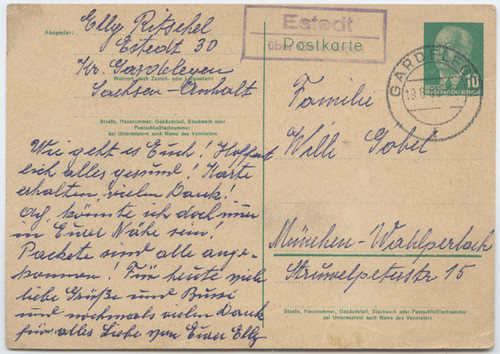 Absender:
Elly Ritschel
Estedt 30
Kr. Gardelegen
Wohnort, auch Zustell- oder Leitpostamt
Sachsen-Anhalt
Straße, Hausnummer, Gebäudeteil, Stockwerk oder
Postschließfachnummer;
bei Untermietern auch Name des Vermieters
Wie geht es Euch! Hoffent
lich alles gesund! Karte
erhalten, vielen Dank!
Ach, könnte ich doch nur
in Eurer Nähe sein!
Packete sind alle ange-
kommen! Für heute
liebe Grüße und Bussi
und nochmals vielen Dank
für alles Liebe von Euer Elly
Estedt
über
Postkarte
GARDELEGEN
10
DEUTSCHE
DEMOKRATISCHE REPUBLIK
Familie
Willi Gobel
München-Wahlperlach
Struwelpeterstr 15
Straße, Hausnummer, Gebäudeteil, Stockwerk oder Postschließfachnummer;
bei Untermietern auch Name des Vermieters